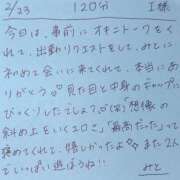 2/23 120分 I様
今日は、事前にオキニトークをく
れて、出勤リクエストをして、みとに
初めて会いに来てくれて、本当にあ
りがとう♡ 見た目と中身のギャップに
びっくりしたでしょ?♡(笑)「想像の
斜め上をいくエロさ」「最高だった」って
褒めてくれて、嬉しかったよ☆ また2人
でいっぱい遊ぼうね!!
みと